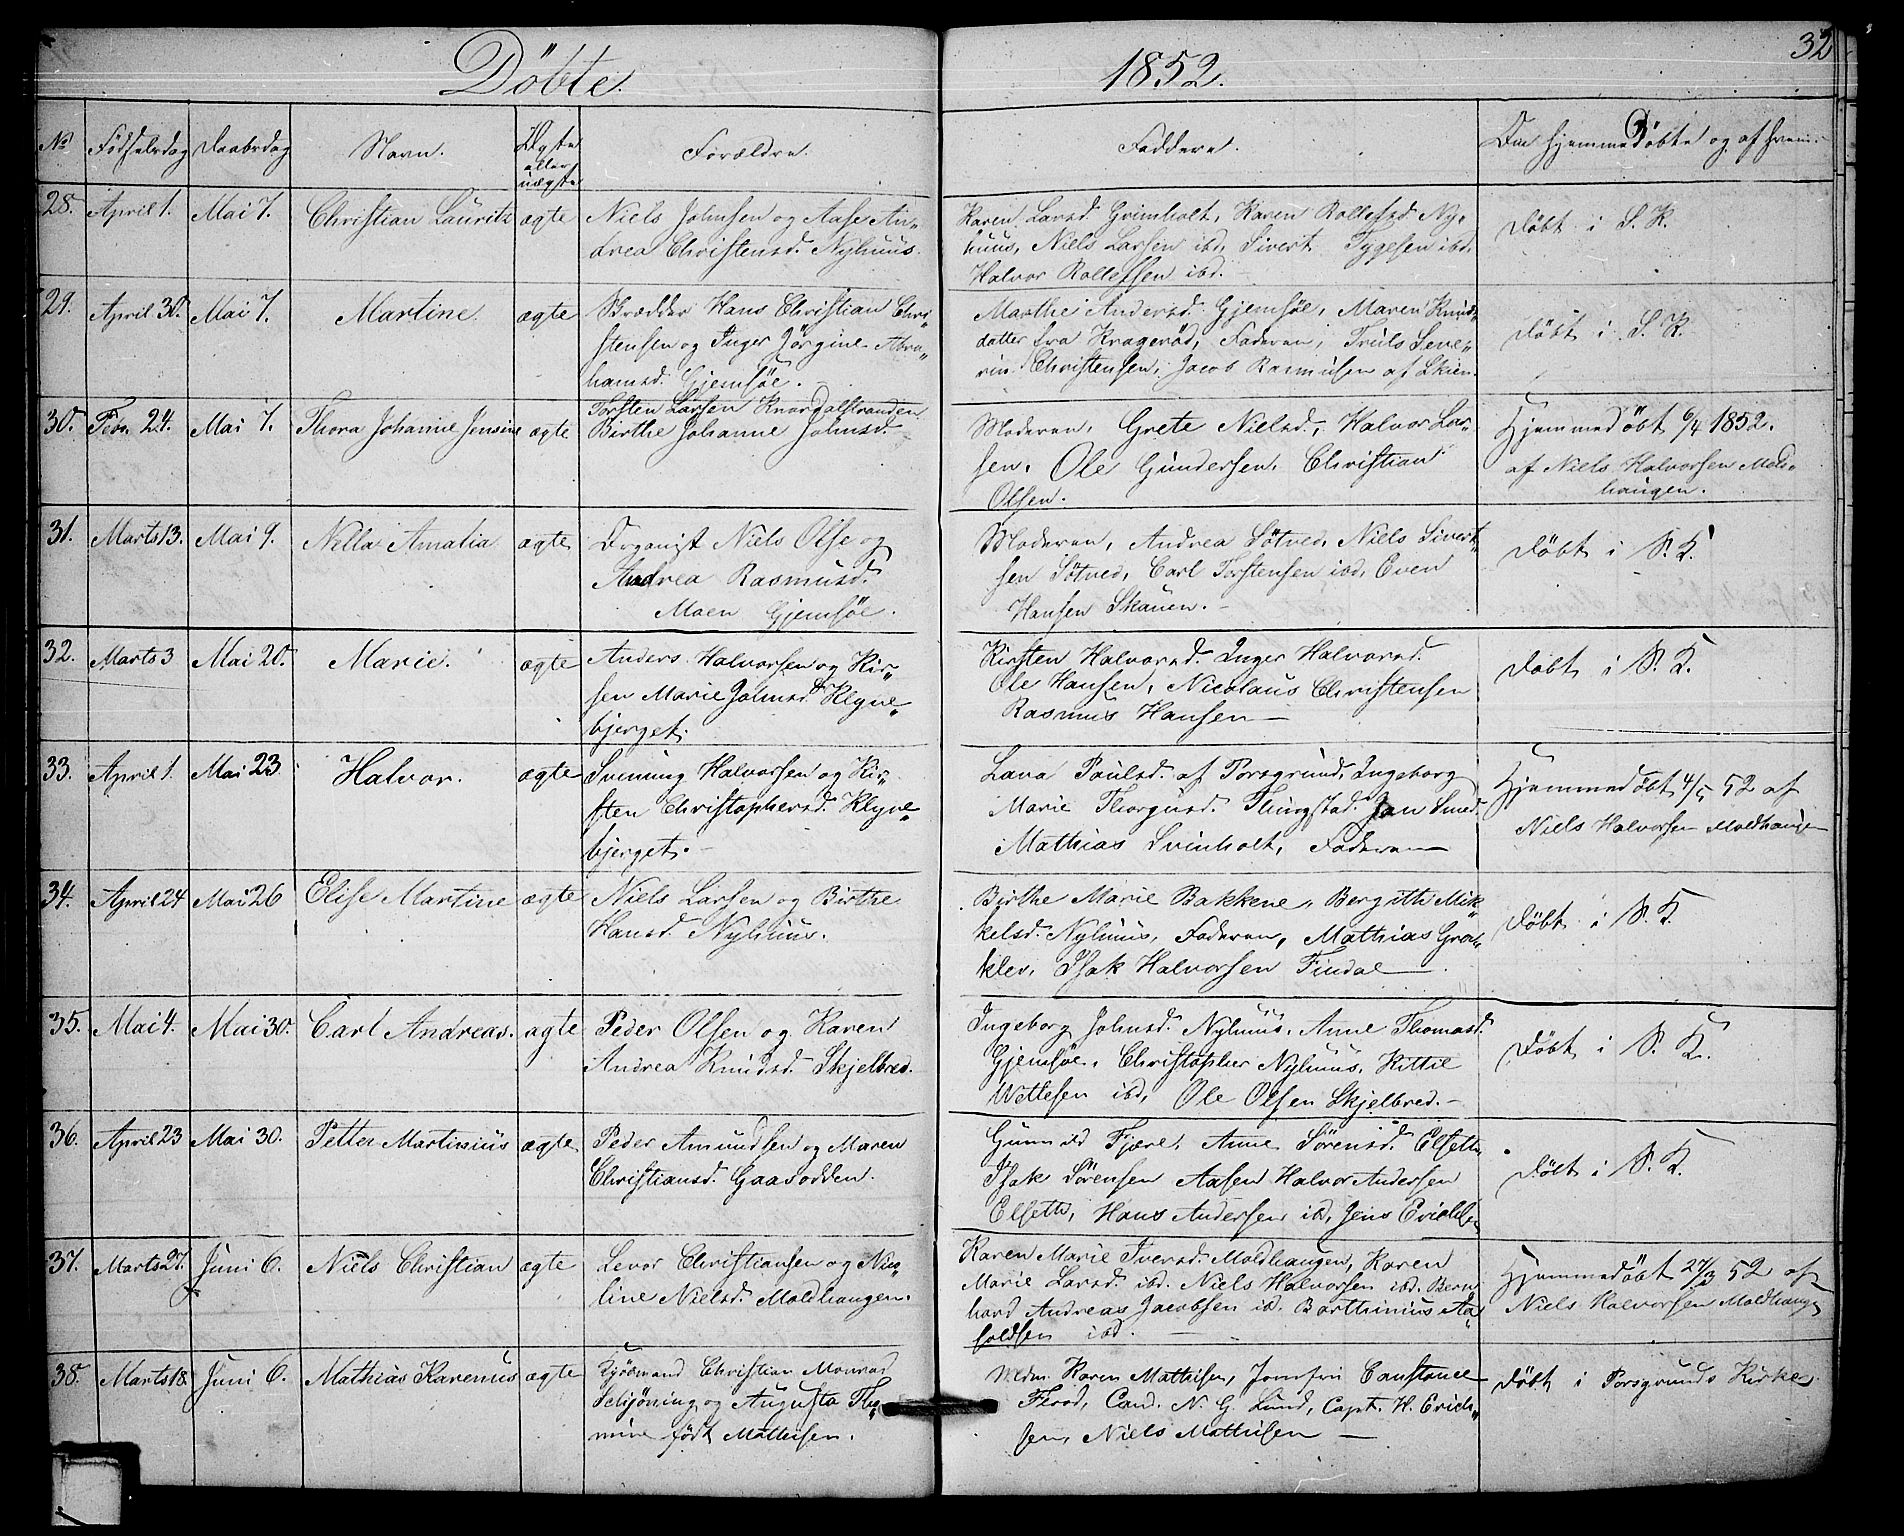 Döbte. 1852. 32
No Fødselsdag Daabsdag Navn. Ægte Forældre. Faddere. Om hjemmedöbte og af hvem.
eller
uægte
28. April 1. Mai 7. Christian Lauritz ægte Niels Johnsen og Aase An-
drea Christensd. Nyhuus.
Karen Larsd. Grimholt, Karen Rollefsd. Ny-
huus, Niels Larsen ibd, Sivert Tygesen ibd.
Halvor Rollefsen ibd.
döbt i S. K.
29. April 30. Mai 7. Martine. ægte Skrædder Hans Christian Chri-
stensen og Inger Jörgine Abra-
hamsd. Gjemsöe.
Marthe Andersd. Gjemsöe, Maren Knuds-
datter fra Krageröe, Faderen, Truls Seve-
rin Christensen, Jacob Rasmusen af Skien.
döbt i S. K.
30. Febr. 24. Mai 7. Thora Johanne Jensine ægte Torsten Larsen Knardalstranden
Birthe Johanne Johnsd.
Moderen, Grete Nielsd, Halvor Lar-
sen. Ole Gundersen. Christian
Olsen.
Hjemmedöbt 6/4 1852.
af Niels Halvorsen Mold-
haugen.
31. Marts 13. Mai 9. Nilla Amalia ægte Organist Niels Olse og
Andrea Rasmusd.
Moen Gjemsöe.
Moderen, Andrea Sötved, Niels Sivert-
sen Sötved, Carl Torstensen ibd, Even
Hansen Skauen.
döbt i S. K.
32. Marts 3 Mai 20. Marie. ægte Anders Halvorsen og Kir-
sten Marie Johnsd. Klyve-
bjerget.
Kirsten Halvorsd. Inger Halvorsd.
Ole Hansen, Nicolaus Christensen
Rasmus Hansen
döbt i S. K.
33. April 1. Mai 23 Halvor. ægte Svenung Halvorsen og Kir-
sten Christophersd. Klyve-
bjerget.
Lava Poulsd. af Porsgrund, Ingeborg
Marie Thorgusd. Thingstad. Jan Smed.
Mathias Svinholt, Faderen
Hjemmedöbt 4/5 52 af
Niels Halvorsen Moldhaugen
34. April 24 Mai 26 Elise Martine ægte Niels Larsen og Birthe
Hansd. Nyhuus.
Birthe Marie Bakkene, Bergitte Mik-
kelsd. Nyhuus, Faderen, Mathias Grøt-
klev, Isak Halvorsen Findal
döbt i S. K.
35. Mai 4. Mai 30. Carl Andreas. ægte Peder Olsen og Karen
Andrea Knudsd. Skjelbred.
Ingeborg Johnsd. Nyhuus, Anne Thomasd.
Gjemsöe, Christopher Nyhuus, Kittil
Wetlesen ibd, Ole Olsen Skjelbred.
döbt i S. K.
36. April 23 Mai 30. Petter Martinius ægte Peder Amundsen og Maren
Christiansd. Gaasodden.
Fjære, Anne Sörensd. Elsett,
Isak Sörensen Aasen Halvor Andersen
Elsett, Hans Andersen ibd, Jens Ericksen
döbt i S. K.
37. Marts 27. Juni 6. Niels Christian ægte Levor Christiansen og Nico-
line Nielsd. Moldhaugen.
Karen Marie Iversd. Moldhaugen, Karen
Marie Larsd. ibd. Niels Halvorsen ibd. Bern-
hard Andreas Jacobsen ibd. Barthinius Aa-
soldsen ibd.
Hjemmedöbt 27/3 52 af
Niels Halvorsen Moldhaug
38. Marts 18. Juni 6. Mathias Karenus ægte Kjöbmand Christian Monrad
Schjöning og Augusta Tho-
mine född Mathisen.
Mdm. Karen Mathisen, Jomfru Constance
Flood, Cand. N. G. Lund, Capt. H. Erich-
sen, Niels Mathisen
döbt i Porsgrunds Kirke.